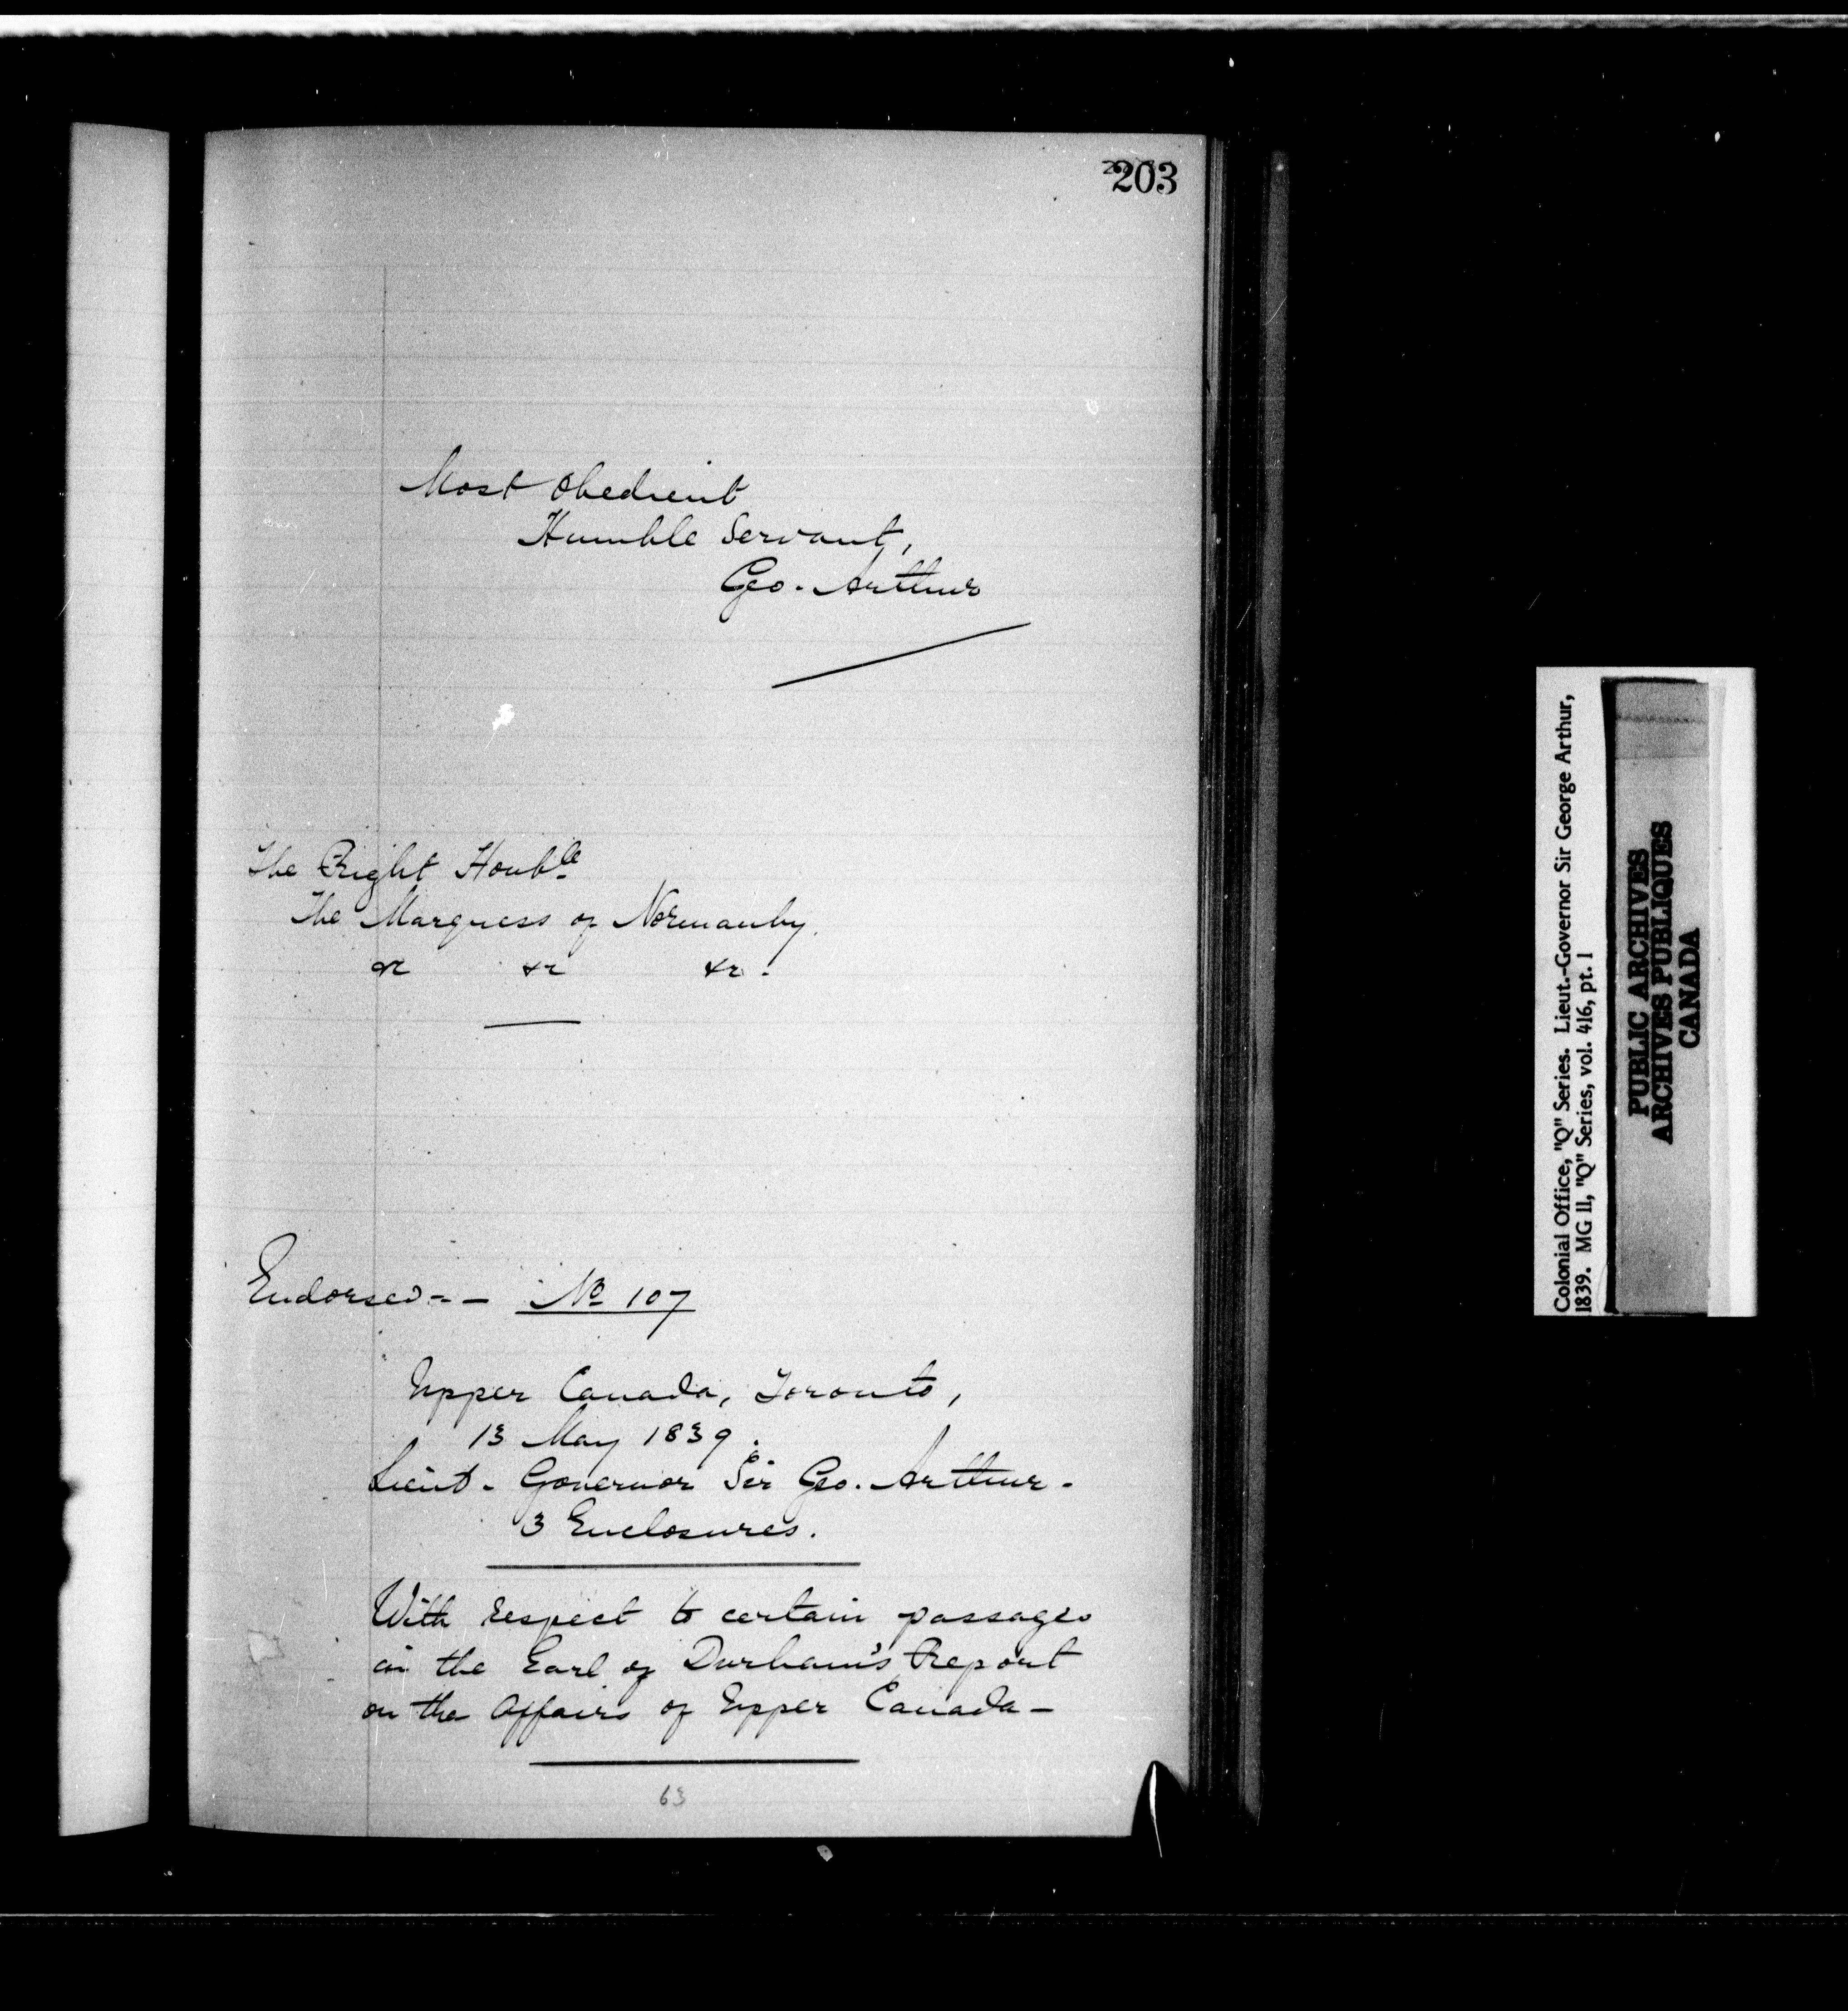 203
Most Obedient
Humble Servant,
Geo. Arthur
The Right Honble
The Marquess of Normanby.
&c &c &c.
Endorsed - - No 107
Upper Canada, Toronto,
13 May 1839.
Lieut. Governor Sir Geo. Arthur.
3 Enclosures.
With respect to certain passages
in the Earl of Durham's Report
on the Affairs of Upper Canada -
63
Colonial Office, "Q" Series. Lieut.-Governor Sir George Arthur,
1839. MG 11, "Q" Series, vol. 416, pt. 1
PUBLIC ARCHIVES
ARCHIVES PUBLIQUES
CANADA